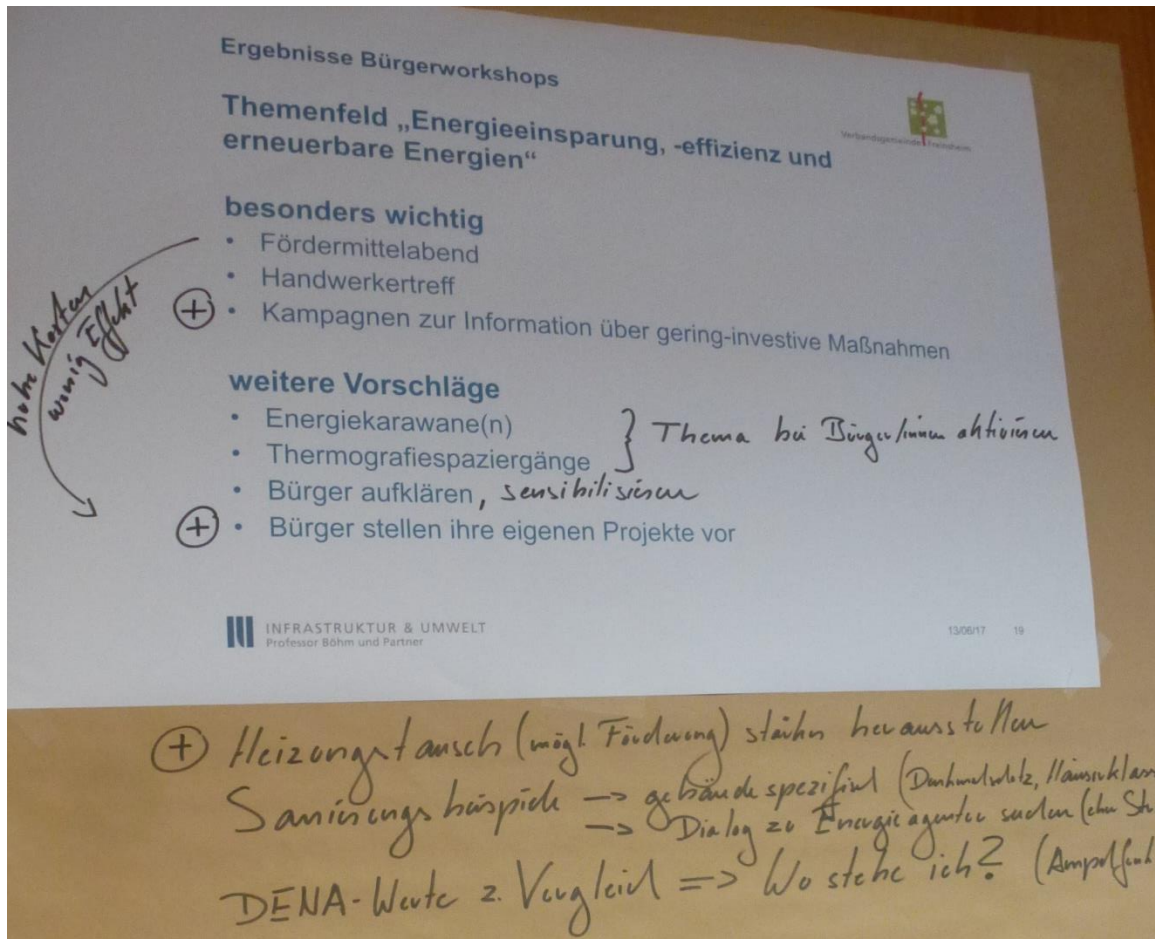 Ergebnisse Bürgerworkshops
Themenfeld „Energieeinsparung, -effizienz und
erneuerbare Energien“
Verbandsgemeinde Freinsheim
besonders wichtig
• Fördermittelabend
• Handwerkertreff
⊕ • Kampagnen zur Information über gering-investive Maßnahmen
hohe Kosten
wenig Effekt
weitere Vorschläge
• Energiekarawane(n)
• Thermografiespaziergänge
} Thema bei Bürger/innen aktivieren
• Bürger aufklären, sensibilisieren
⊕ • Bürger stellen ihre eigenen Projekte vor
INFRASTRUKTUR & UMWELT
Professor Böhm und Partner
13/06/17 19
⊕ Heizungstausch (mögl. Förderung) stärker herausstellen
Sanierungsbeispiele -> gebäudespezifisch (Denkmalschutz, Häuserklass
-> Dialog zu Energieagentur suchen (
DENA-Werte z. Vergleich => Wo stehe ich? (Ampel